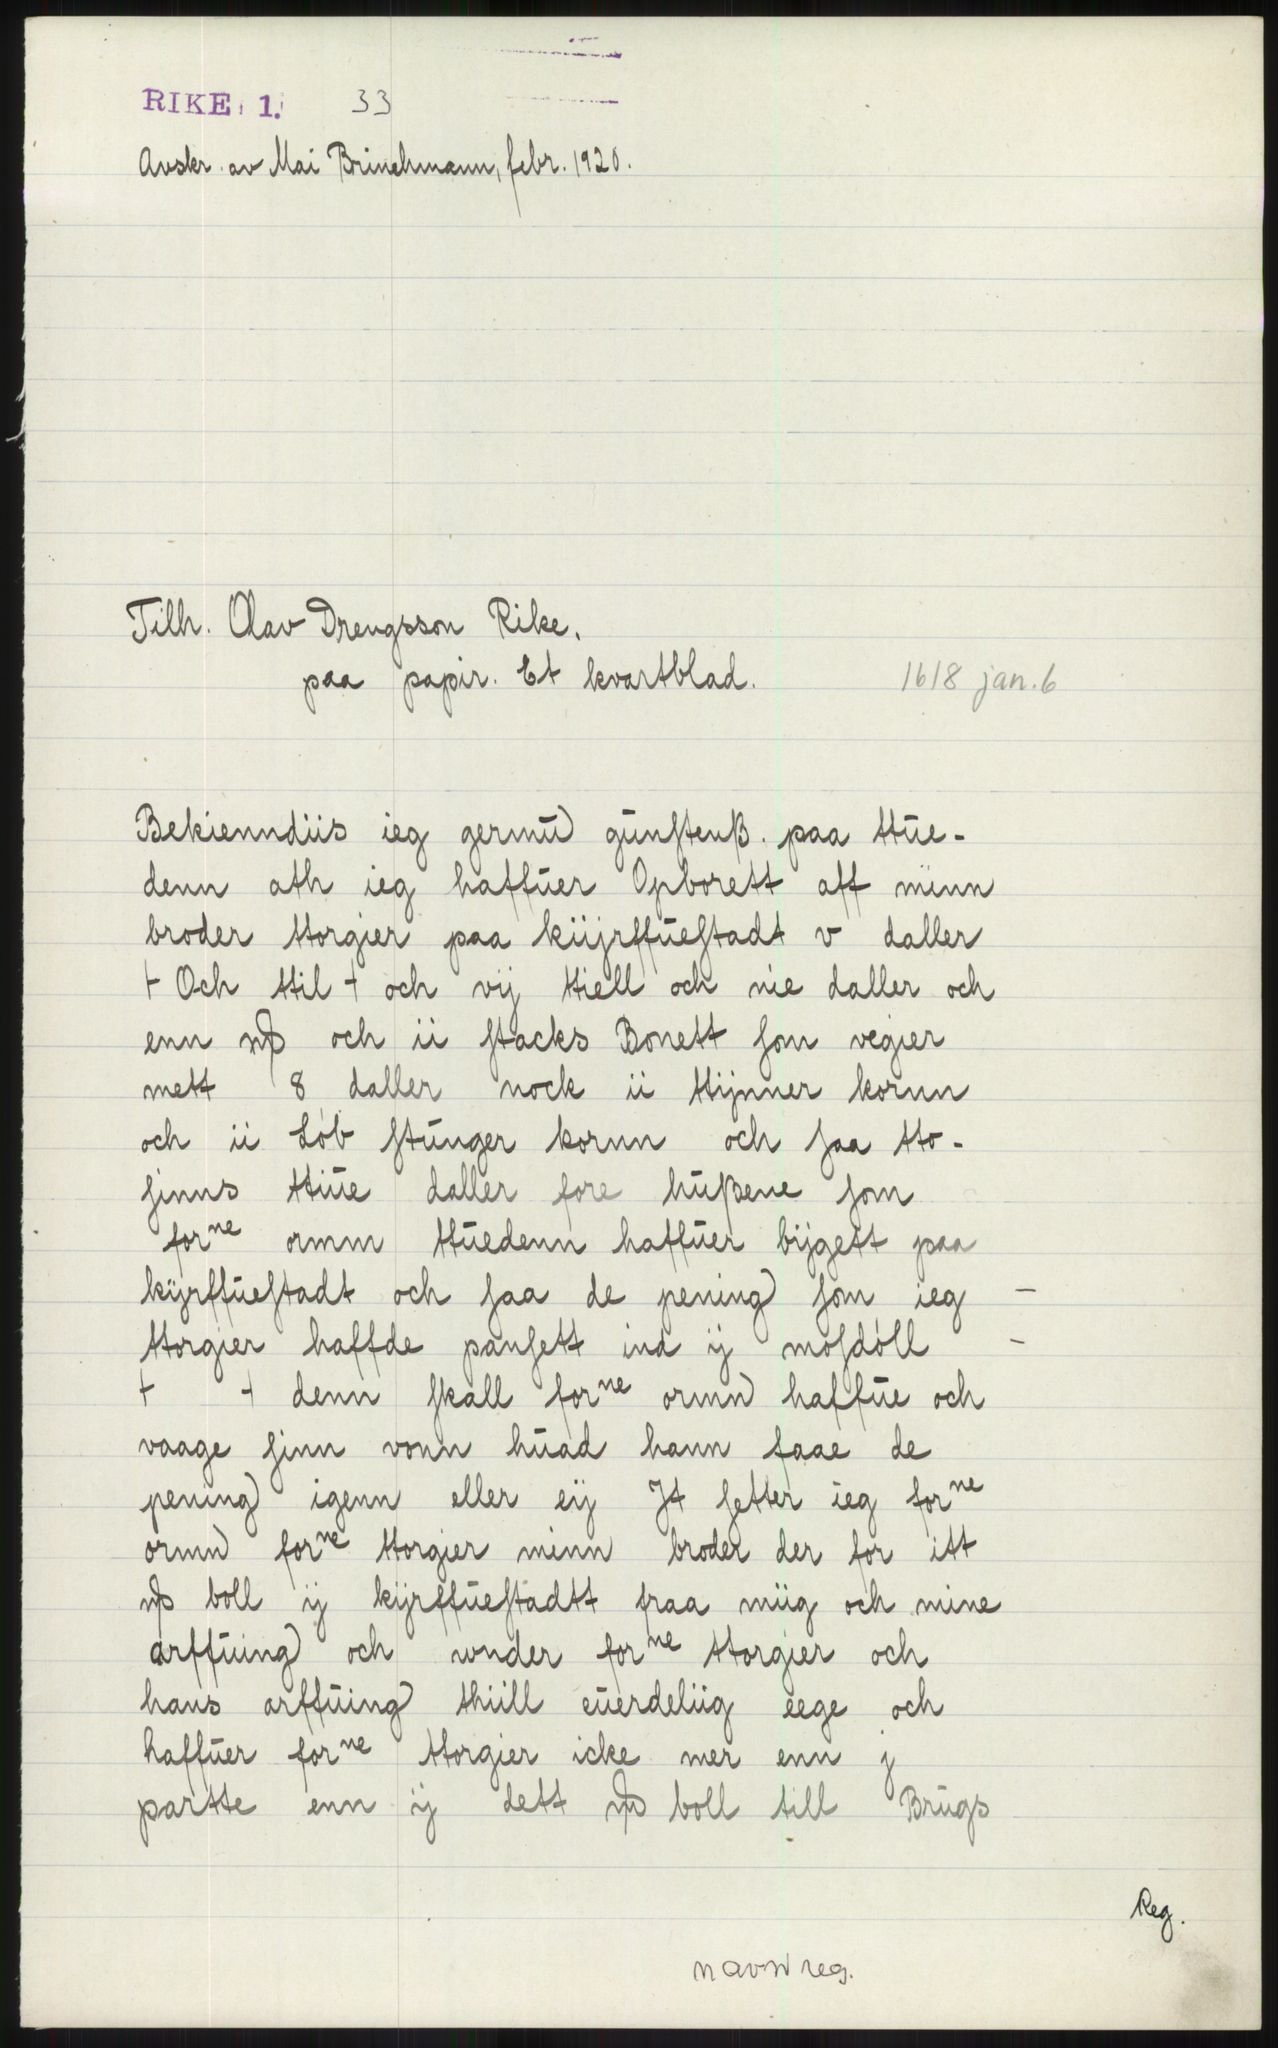 RIKE 1. 33
Avskr. av Mai Brinchmann, febr. 1920.
Tilh. Olav Drengsson Rike.
paa papir. Et kvartblad. 1618 jan. 6
Bekienndiis ieg germŭ gŭnſtenß. paa ttŭe-
denn ath ieg haffŭer Opborett aff minn
broder ttorgier paa kiijrffŭeſtadt v daller
+ Och ttil + och vij ttiell och nie daller och
enn och ii ſtacks Bonett ſom vegier
mett 8 daller nock ii ttijnner kornn
och ii Lób ſtŭnger kornn och ſaa tto-
ſinns ttiŭe daller fore hŭßene ſom
forne ormm ttŭedenn haffŭer bijgett paa
kijrffŭeſtadt och ſaa de pening ſom ieg –
ttorgier haffde panſett ind ij moſdóll –
+ + denn ſkall forne ormn haffŭe och
vaage ſinn vonn hŭad hann faae de
pening igenn eller eij Jt ſetter ieg forne
ormn forne ttorgier minn broder der for itt
boll ij kijrffŭeſtadtt fraa miig och mine
arffŭing och wnder forne ttorgier och
hans arffŭing thiill eŭerdeliig eege och
haffŭer forne ttorgier icke mer enn j
partte enn ij dett boll till Brŭgs
Reg.
navn reg.